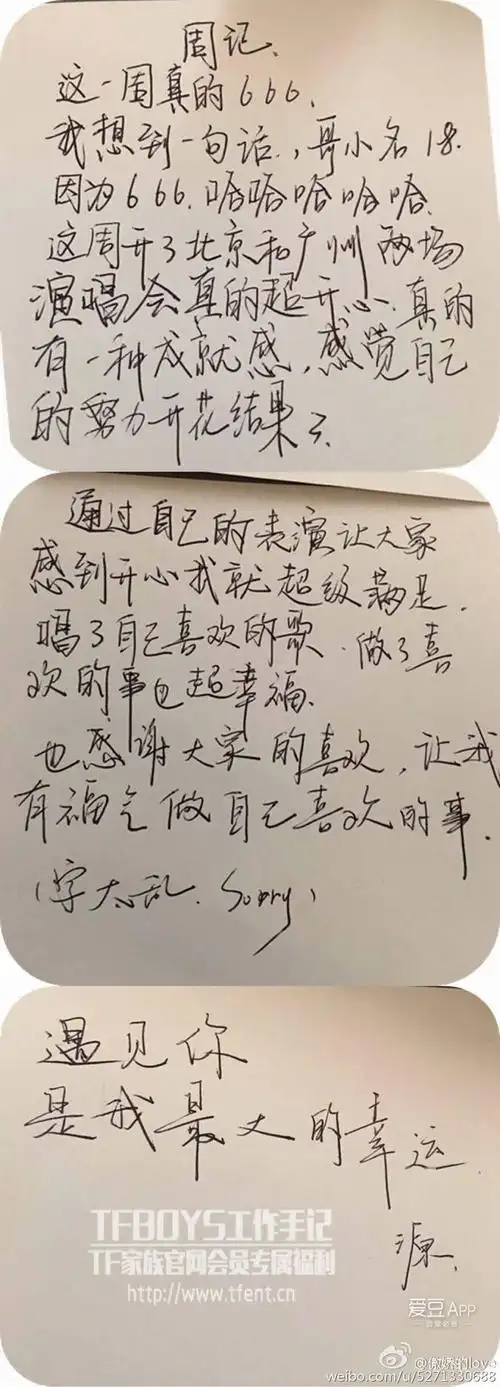 周记.
这一周真的666.
我想到一句话.,哥小名18.
因为666.哈哈哈哈哈.
这周开了北京和广州两场
演唱会真的超开心.真的
有一种成就感.感觉自己
的努力开花结果了.
通过自己的表演让大家
感到开心我就超级满足.
唱了自己喜欢的歌.做了喜
欢的事也超幸福.
也感谢大家的喜欢,让我
有福气做自己喜欢的事.
(字太乱.Sorry)
遇见你
是我最大的幸运.
源.
TFBOYS工作手记
TF家族官网会员专属福利
http://www.tfent.cn
爱豆App
@傲娇的love
weibo.com/u/5271330688